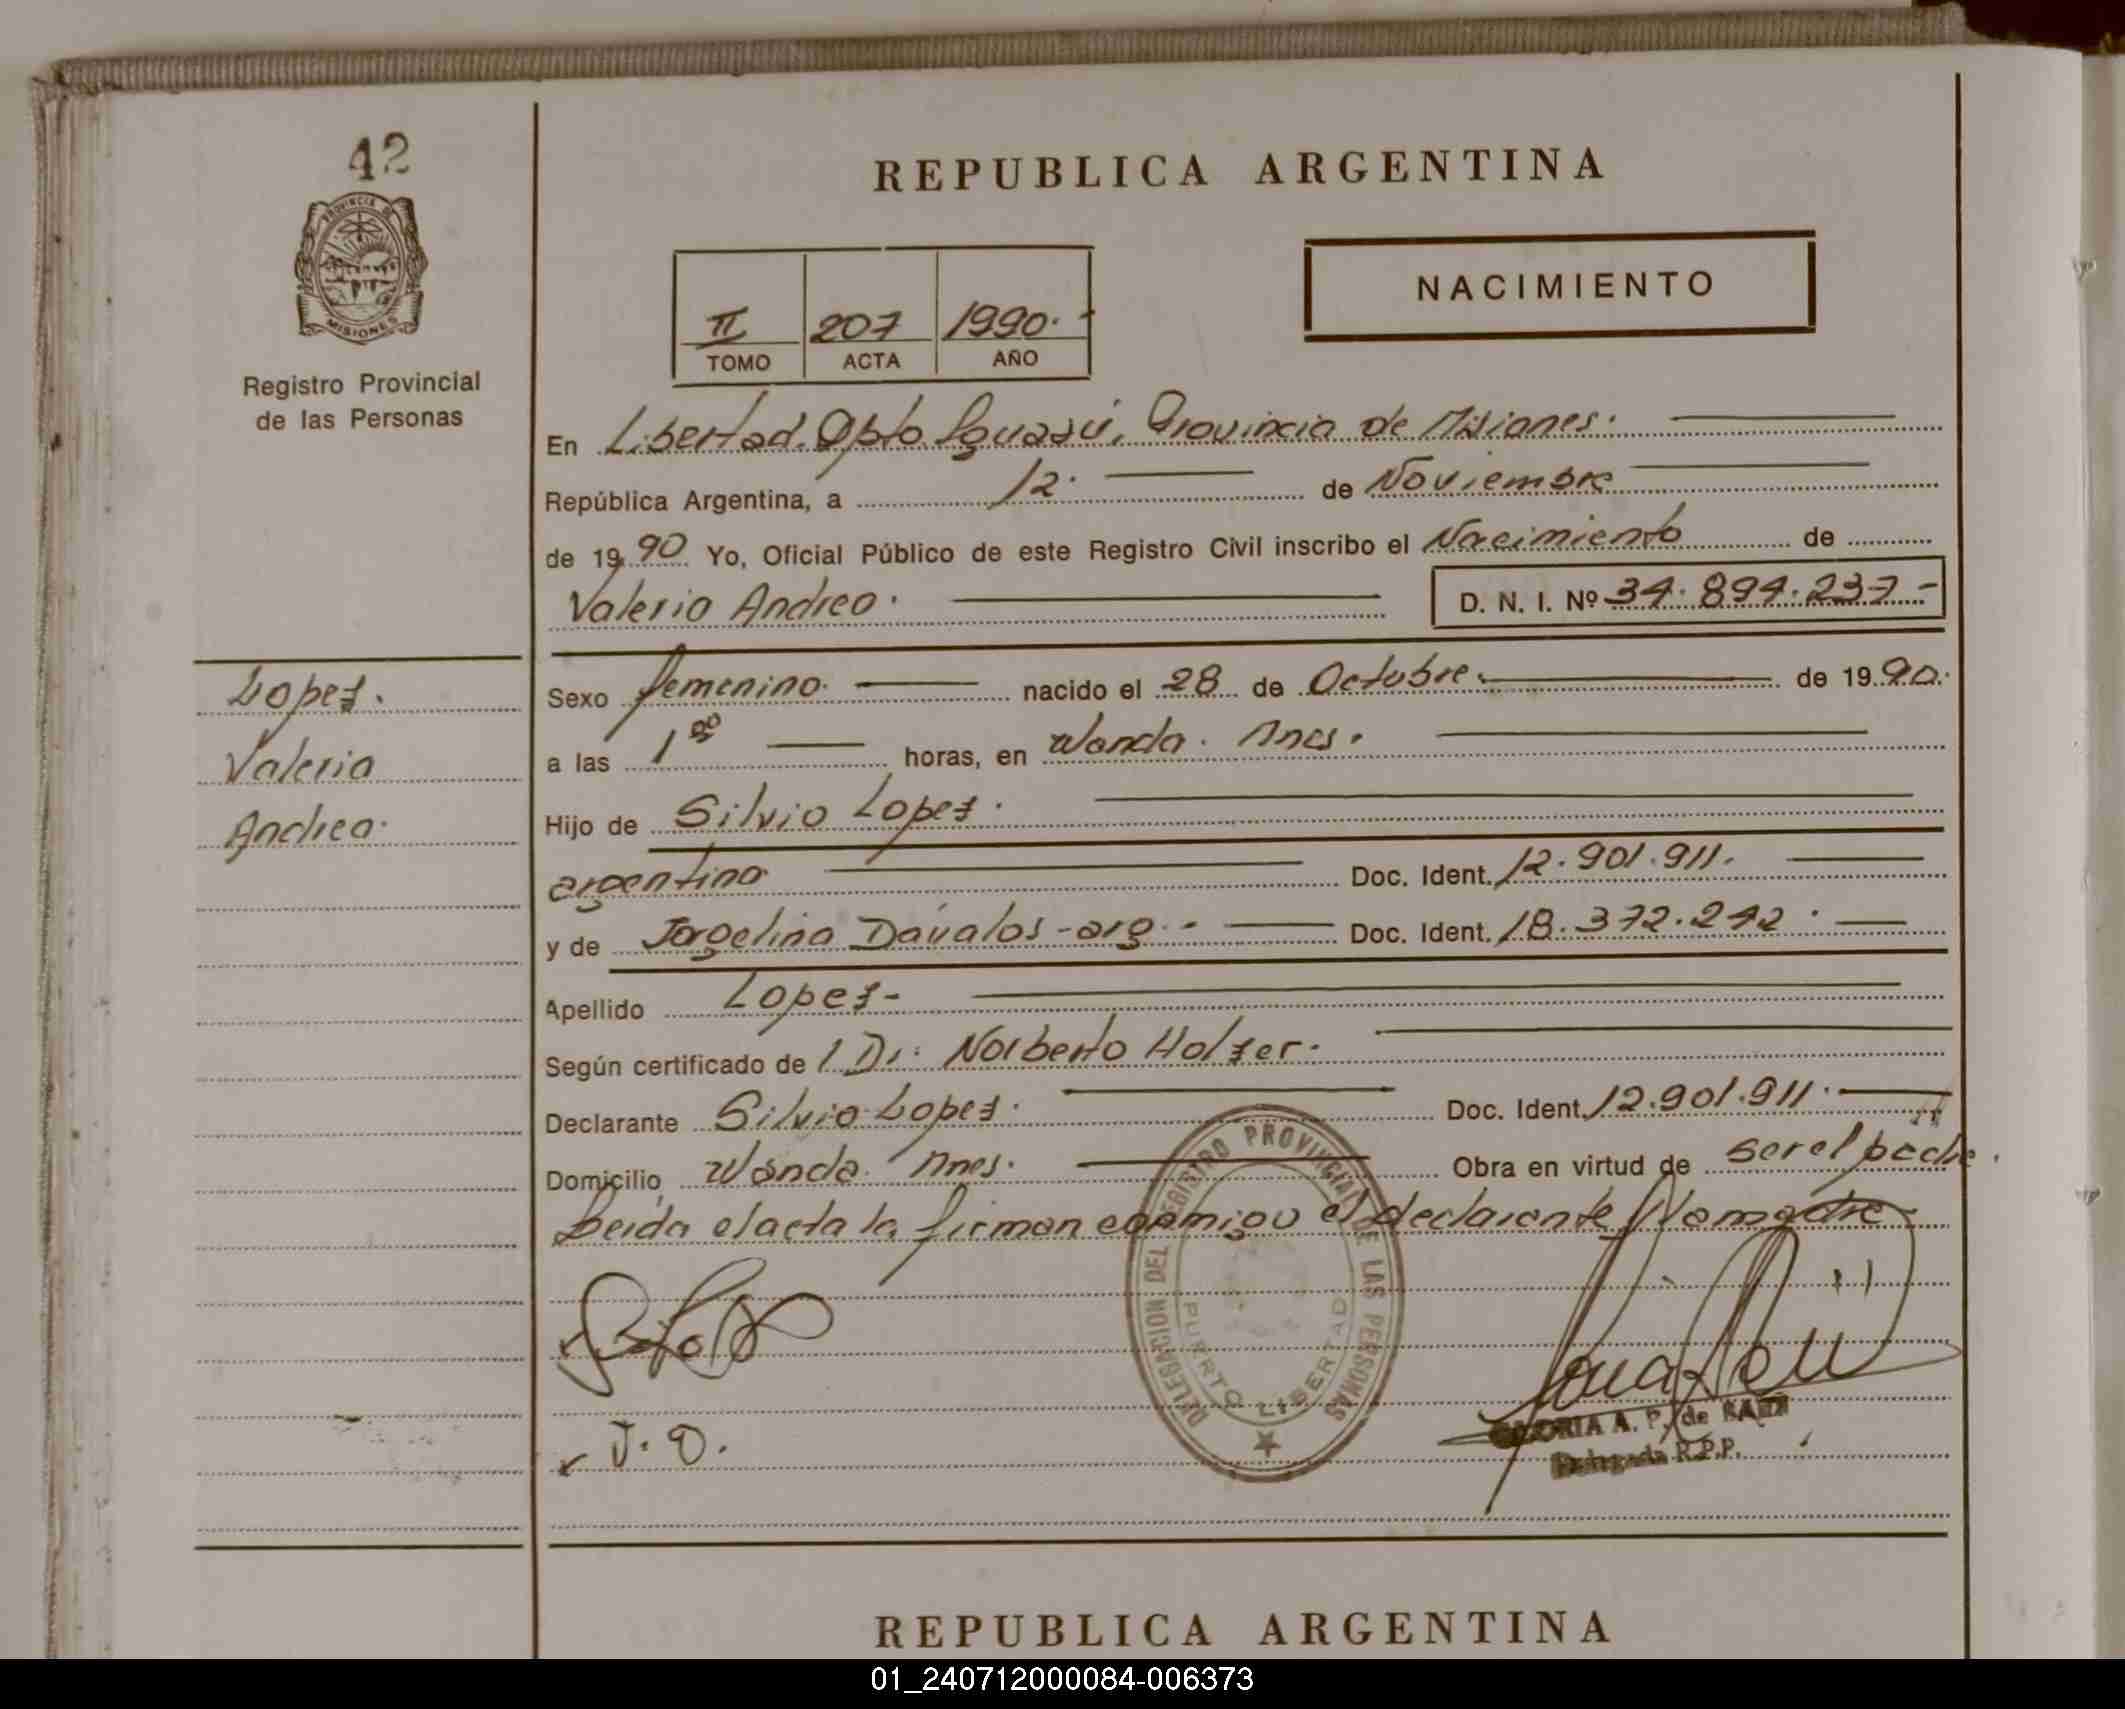 42
PROVINCIA DE
MISIONES
Registro Provincial
de las Personas
Lopez.
Valeria
Andrea.
REPUBLICA ARGENTINA
II 207 1990.-
TOMO ACTA AÑO
NACIMIENTO
En Libertad. Dpto Iguazú, Provincia de Misiones.
República Argentina, a 12. de Noviembre
de 1990 Yo, Oficial Público de este Registro Civil inscribo el Nacimiento de
Valeria Andrea.
D. N. I. Nº 34.894.237-
Sexo femenino. nacido el 28 de Octubre. de 1990.
a las 1 horas, en Wanda. Mnes.
Hijo de Silvio Lopez.
argentino Doc. Ident. 12.901.911.
y de Jorgelina Dávalos-arg.- Doc. Ident. 18.372.242.
Apellido Lopez-
Según certificado de Dr. Norberto Holzer.
Declarante Silvio Lopez. Doc. Ident. 12.901.911.
Domicilio Wanda. Mnes. Obra en virtud de ser el padre.
Leida el acta la firman conmigo el declarante y la madre
DELEGACION DEL REGISTRO PROVINCIAL DE LAS PERSONAS
PUERTO LIBERTAD
J. D.
GLORIA A. P. de
Delegada R.P.P.
REPUBLICA ARGENTINA
01_240712000084-006373